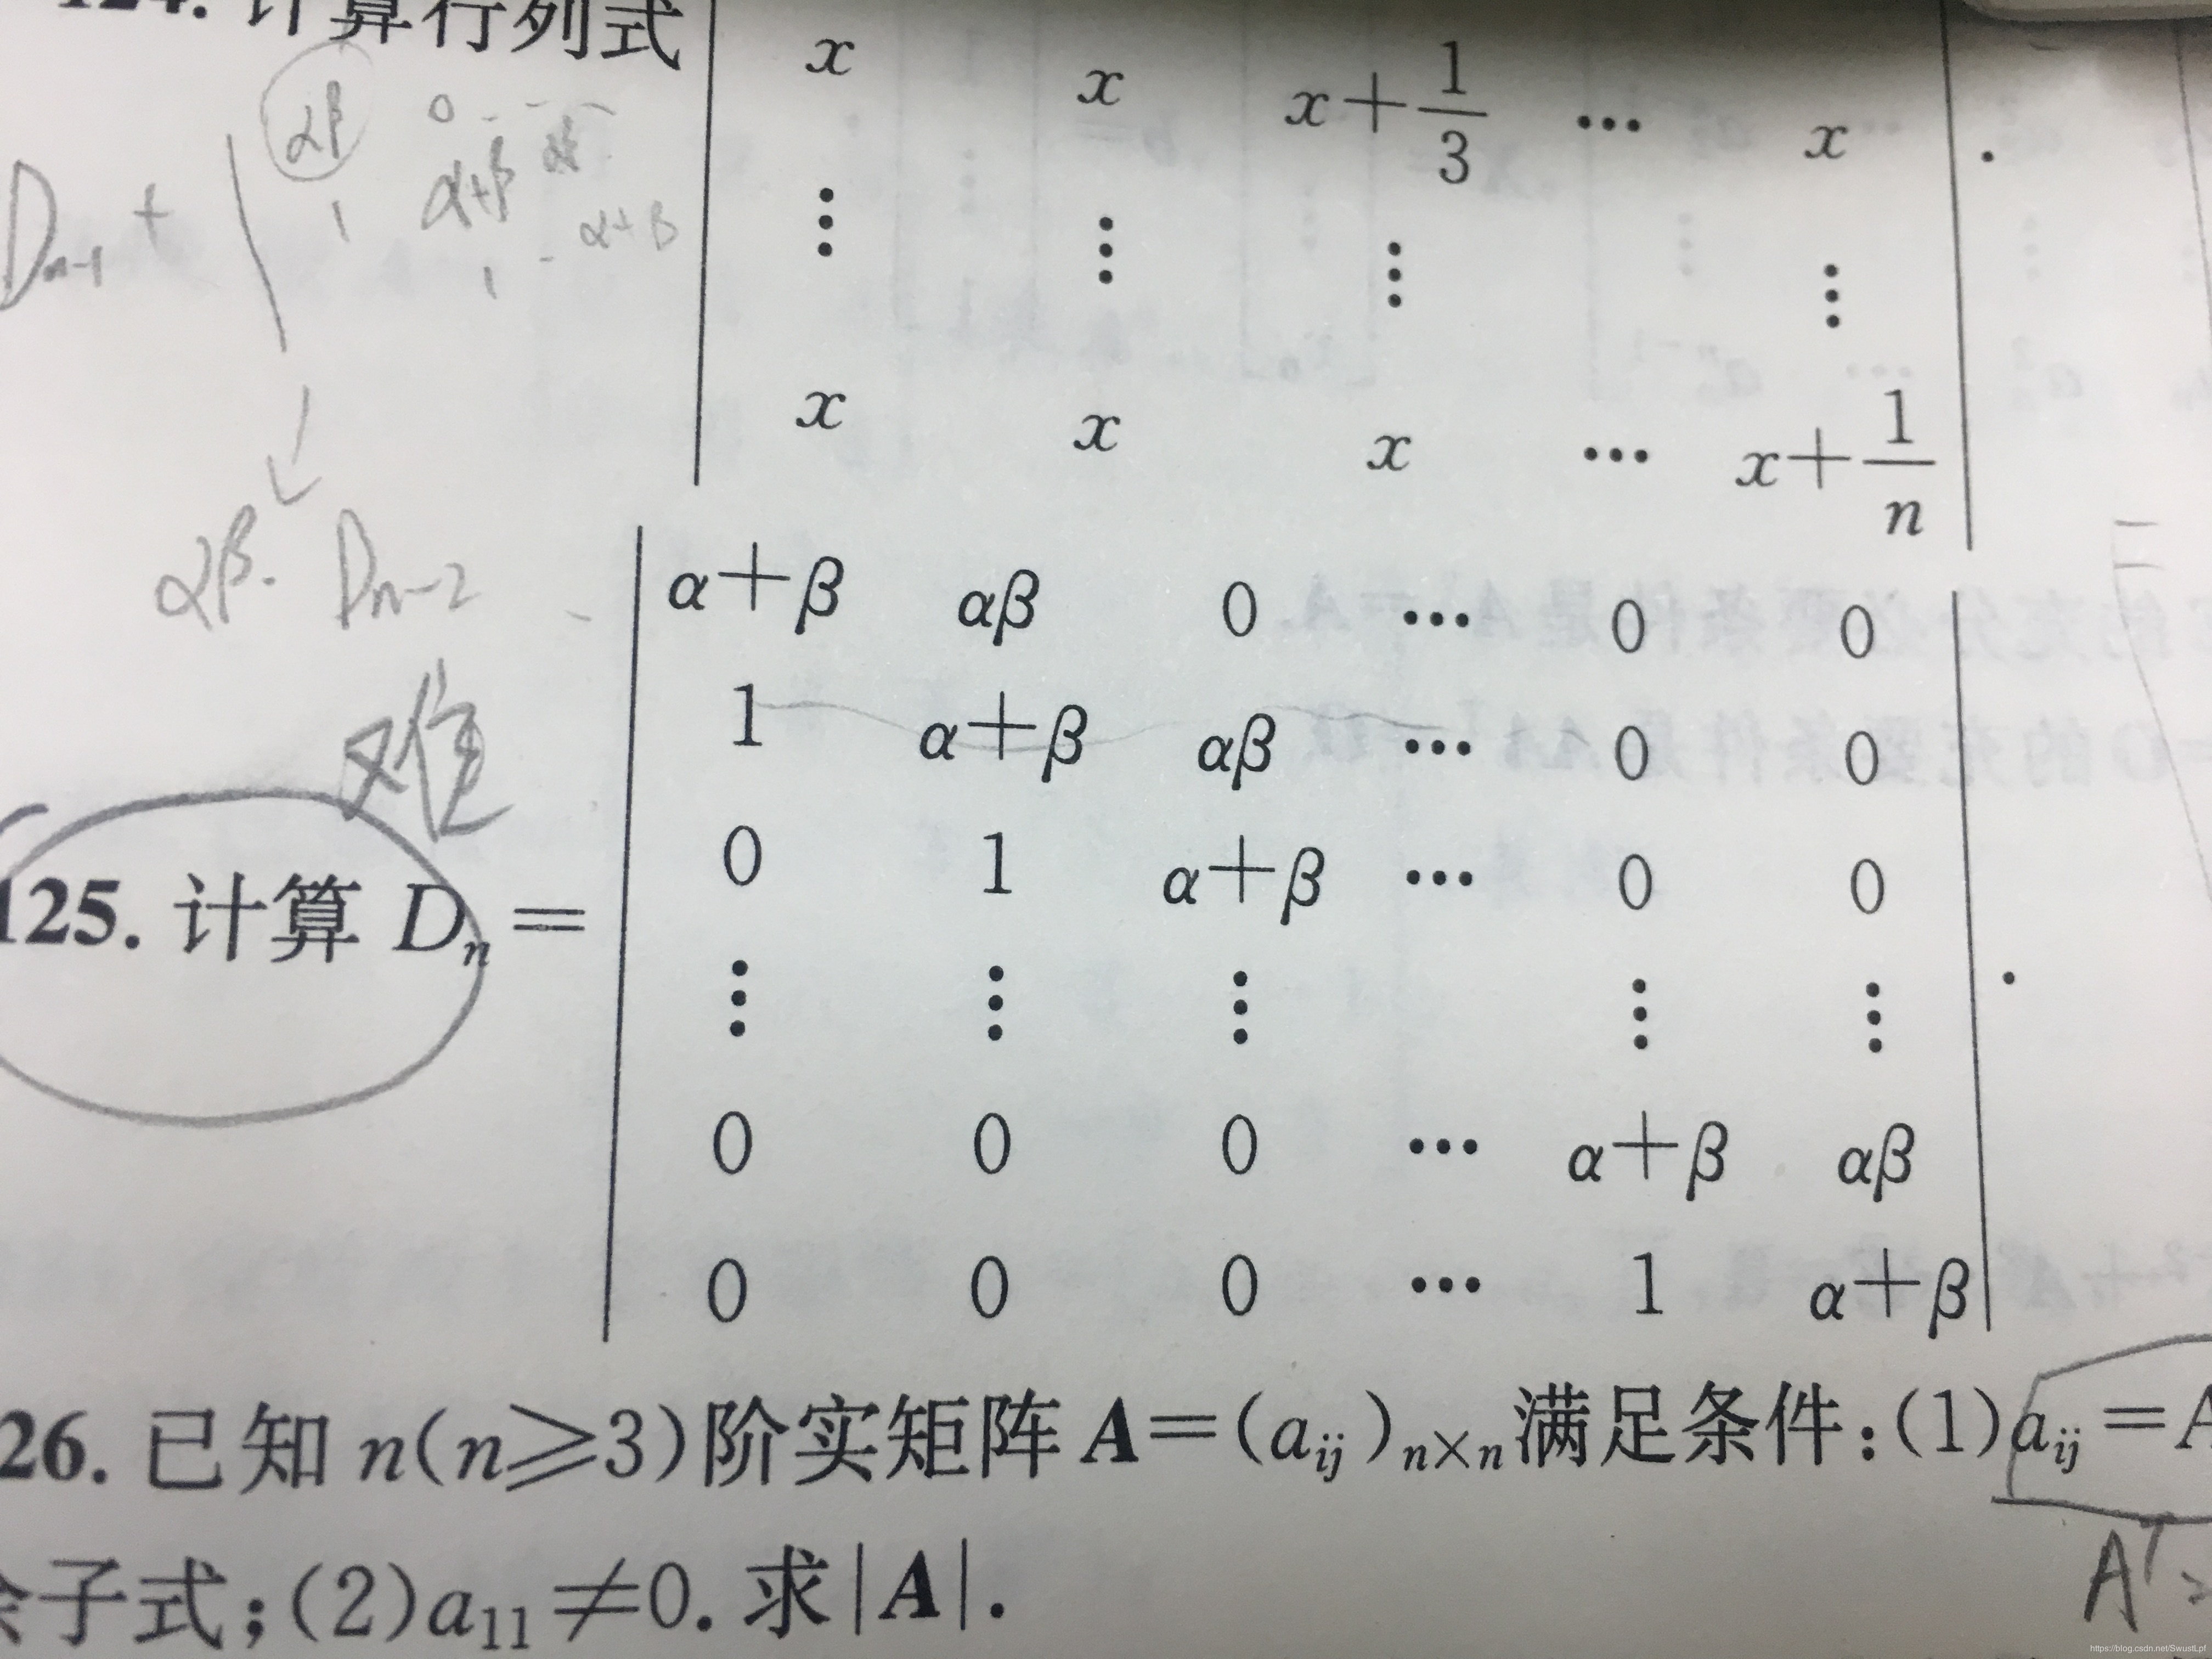 124. 计算行列式
x x x+\frac{1}{3} ⋯ x .
⋮ ⋮ ⋮ ⋮
x x x ⋯ x+\frac{1}{n}
αβ 0
D_{n-1} + 1 α+β α+β
1
αβ · D_{n-2}
难
α+β αβ 0 ⋯ 0 0
1 α+β αβ ⋯ 0 0
0 1 α+β ⋯ 0 0
125. 计算 D_n =
⋮ ⋮ ⋮ ⋮ ⋮ .
0 0 0 ⋯ α+β αβ
0 0 0 ⋯ 1 α+β
26. 已知 n(n⩾3)阶实矩阵 A=(a_{ij})_{n×n}满足条件:(1)a_{ij}=A
余子式;(2)a_{11}≠0. 求|A|.
A^T=
https://blog.csdn.net/SwustLpf